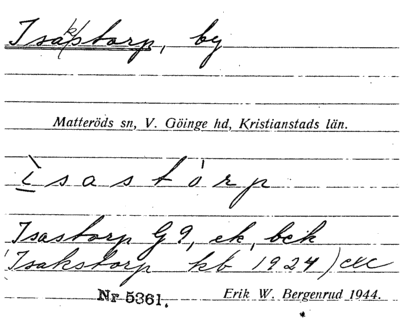 Isakstorp, by
Matteröds sn, V. Göinge hd, Kristianstads län.
ìsastórp
Isastorp G9, ek, bek
(Isakstorp kb 1924) ekc
Nr 5361. Erik W. Bergenrud 1944.